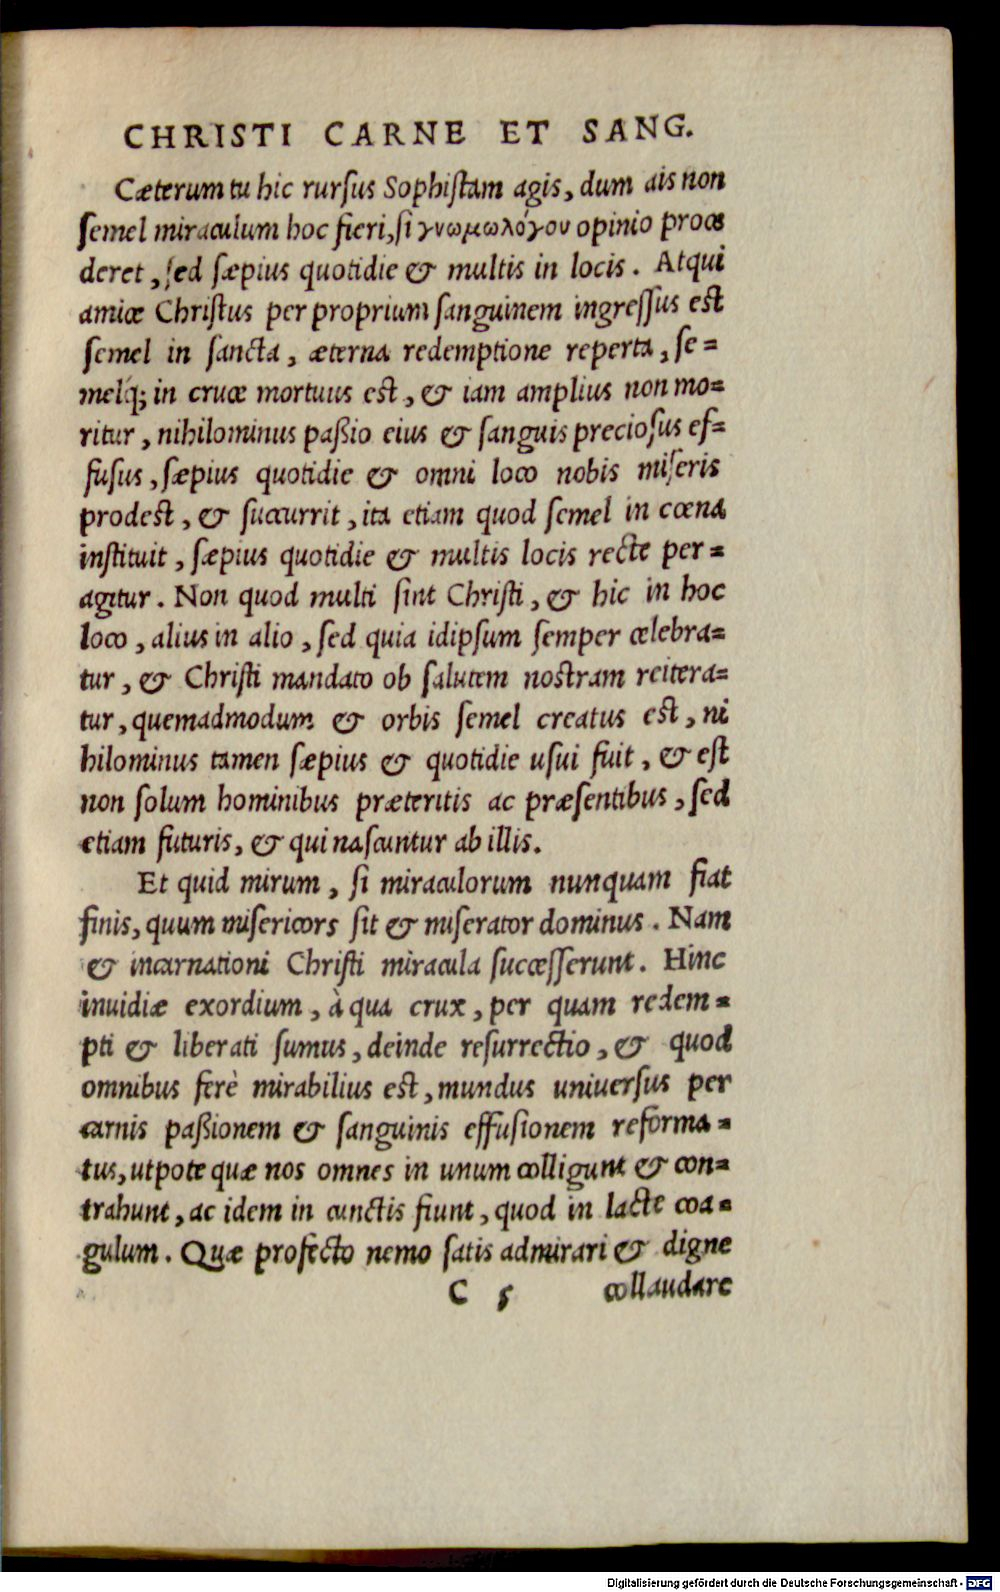 CHRISTI CARNE ET SANG.
Cæterum tu hic rurſus Sophiſtam agis, dum ais non
ſemel miraculum hoc fieri, ſi γνωμωλόγου opinio proce
deret, ſed ſæpius quotidie & multis in locis. Atqui
amice Chriſtus per proprium ſanguinem ingreſſus eſt
ſemel in ſancta, æterna redemptione reperta, ſe=
melq́; in cruce mortuus eſt, & iam amplius non mo=
ritur, nihilominus paßio eius & ſanguis precioſus ef=
fuſus, ſæpius quotidie & omni loco nobis miſeris
prodeſt, & ſuccurrit, ita etiam quod ſemel in cœna
inſtituit, ſæpius quotidie & multis locis recte per=
agitur. Non quod multi ſint Chriſti, & hic in hoc
loco, alius in alio, ſed quia idipſum ſemper celebra=
tur, & Chriſti mandato ob ſalutem noſtram reitera=
tur, quemadmodum & orbis ſemel creatus eſt, ni
hilominus tamen ſæpius & quotidie uſui fuit, & eſt
non ſolum hominibus præteritis ac præſentibus, ſed
etiam futuris, & qui naſcuntur ab illis.
Et quid mirum, ſi miraculorum nunquam fiat
finis, quum miſericors ſit & miſerator dominus. Nam
& incarnationi Chriſti miracula ſucceſſerunt. Hinc
inuidiæ exordium, à qua crux, per quam redem=
pti & liberati ſumus, deinde reſurrectio, & quod
omnibus ferè mirabilius eſt, mundus uniuerſus per
carnis paßionem & ſanguinis effuſionem reforma=
tus, utpote quæ nos omnes in unum colligunt & con=
trahunt, ac idem in cunctis fiunt, quod in lacte coa=
gulum. Quæ profecto nemo ſatis admirari & digne
C 5 collaudare
Digitalisierung gefördert durch die Deutsche Forschungsgemeinschaft - DFG